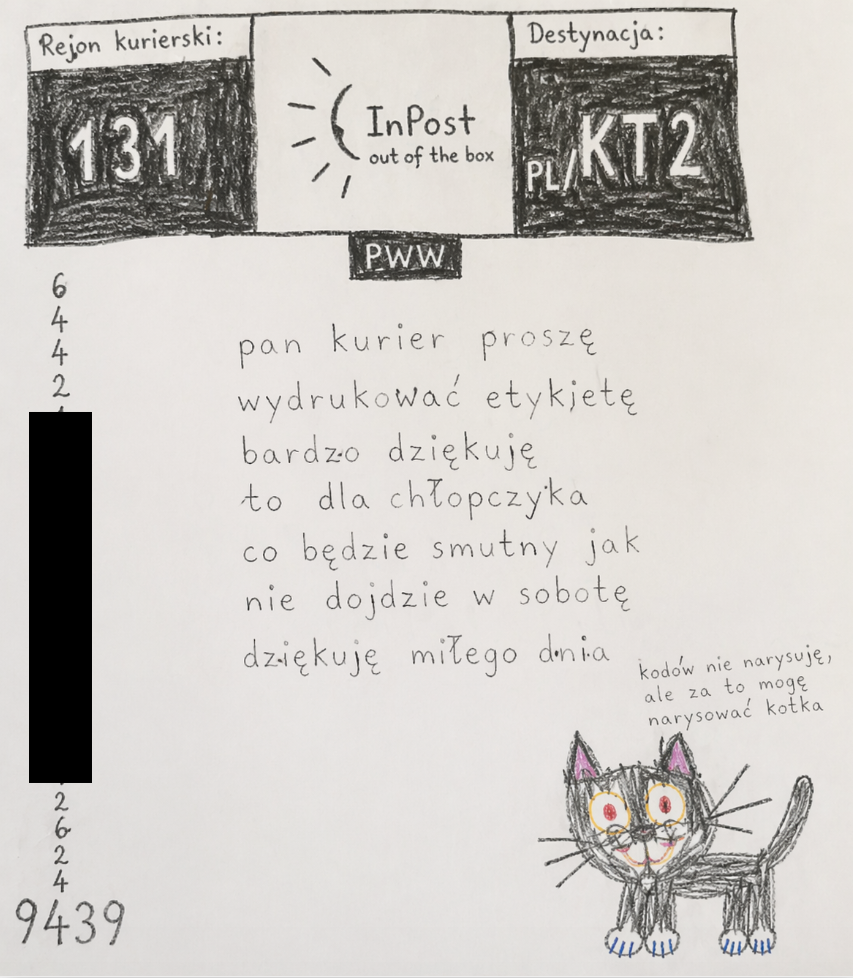 Rejon kurierski:
131
InPost
out of the box
Destynacja:
PL/KT2
PWW
6
4
4
2
pan kurier proszę
wydrukować etykjetę
bardzo dziękuję
to dla chłopczyka
co będzie smutny jak
nie dojdzie w sobotę
dziękuję miłego dnia
kodów nie narysuję,
ale za to mogę
narysować kotka
2
6
2
4
9439